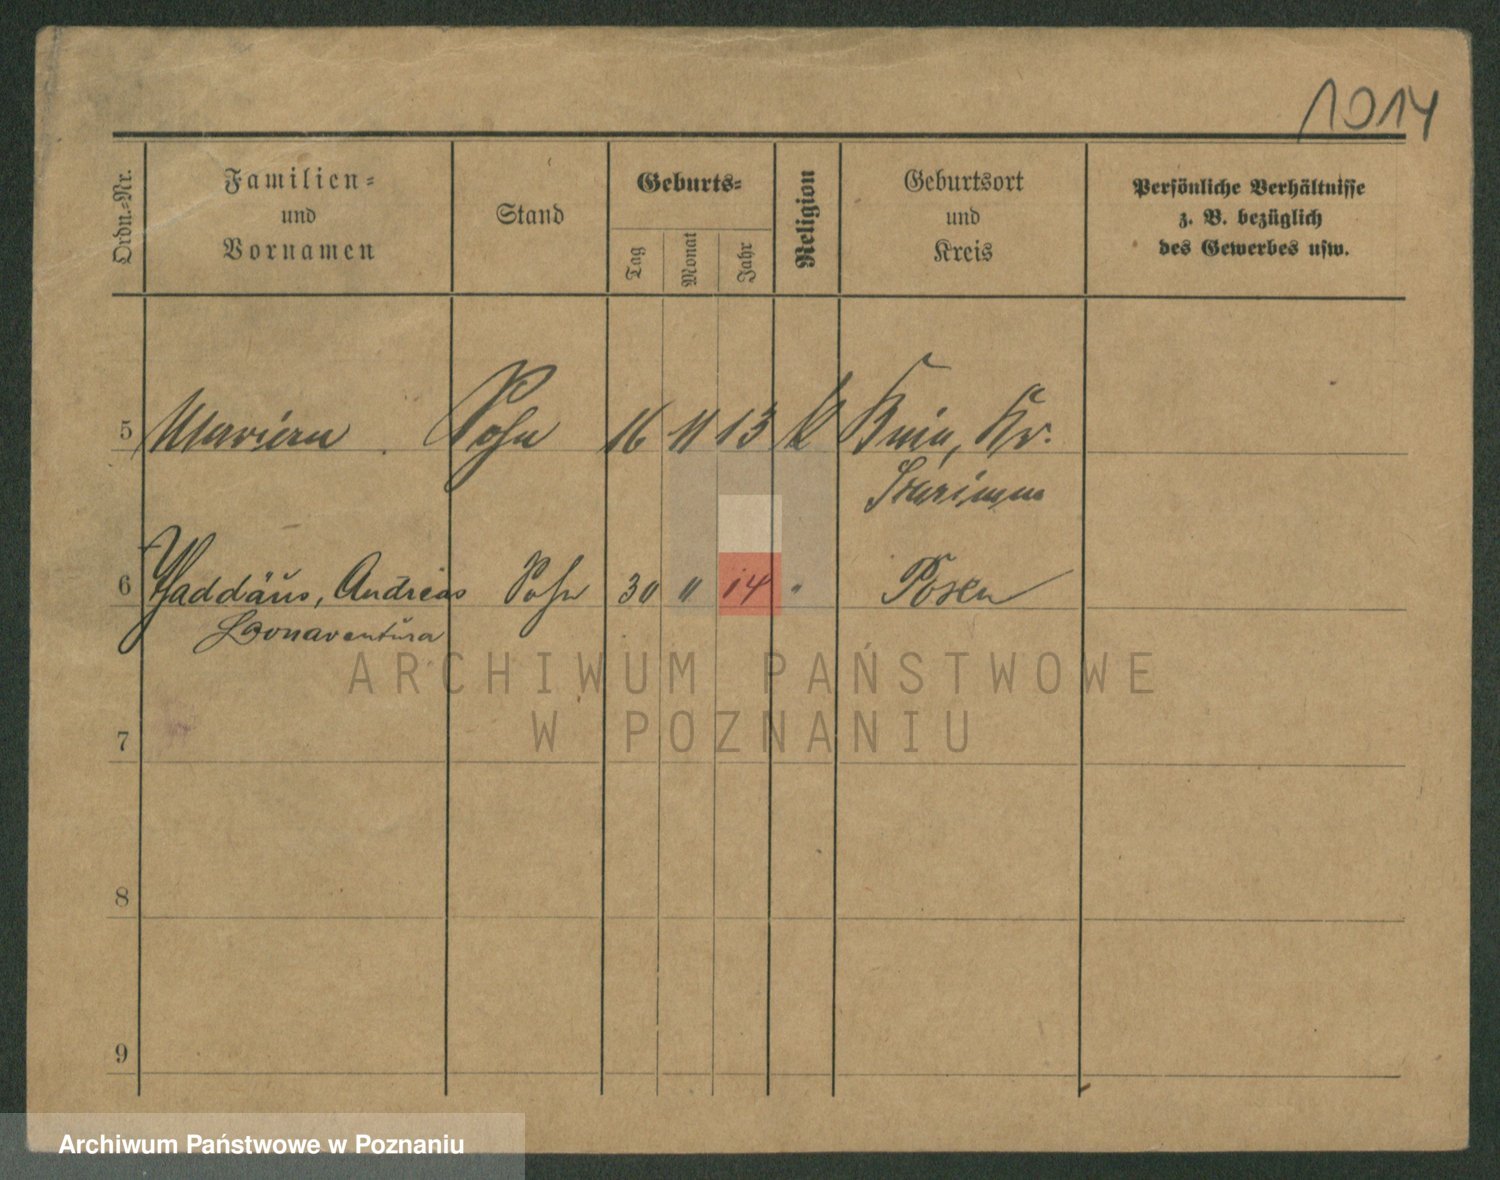 1014
Ordn.-Nr.
Familien-
und
Vornamen
Stand
Geburts-
Tag
Monat
Jahr
Religion
Geburtsort
und
Kreis
Persönliche Verhältnisse
z. B. bezüglich
des Gewerbes usw.
5 Marian Sohn 16 11 13 k Bnin, Kr.
6 Thaddäus, Andreas Sohn 30 " 14 " Posen
Bonaventura
7
8
9
ARCHIWUM PAŃSTWOWE
W POZNANIU
Archiwum Państwowe w Poznaniu